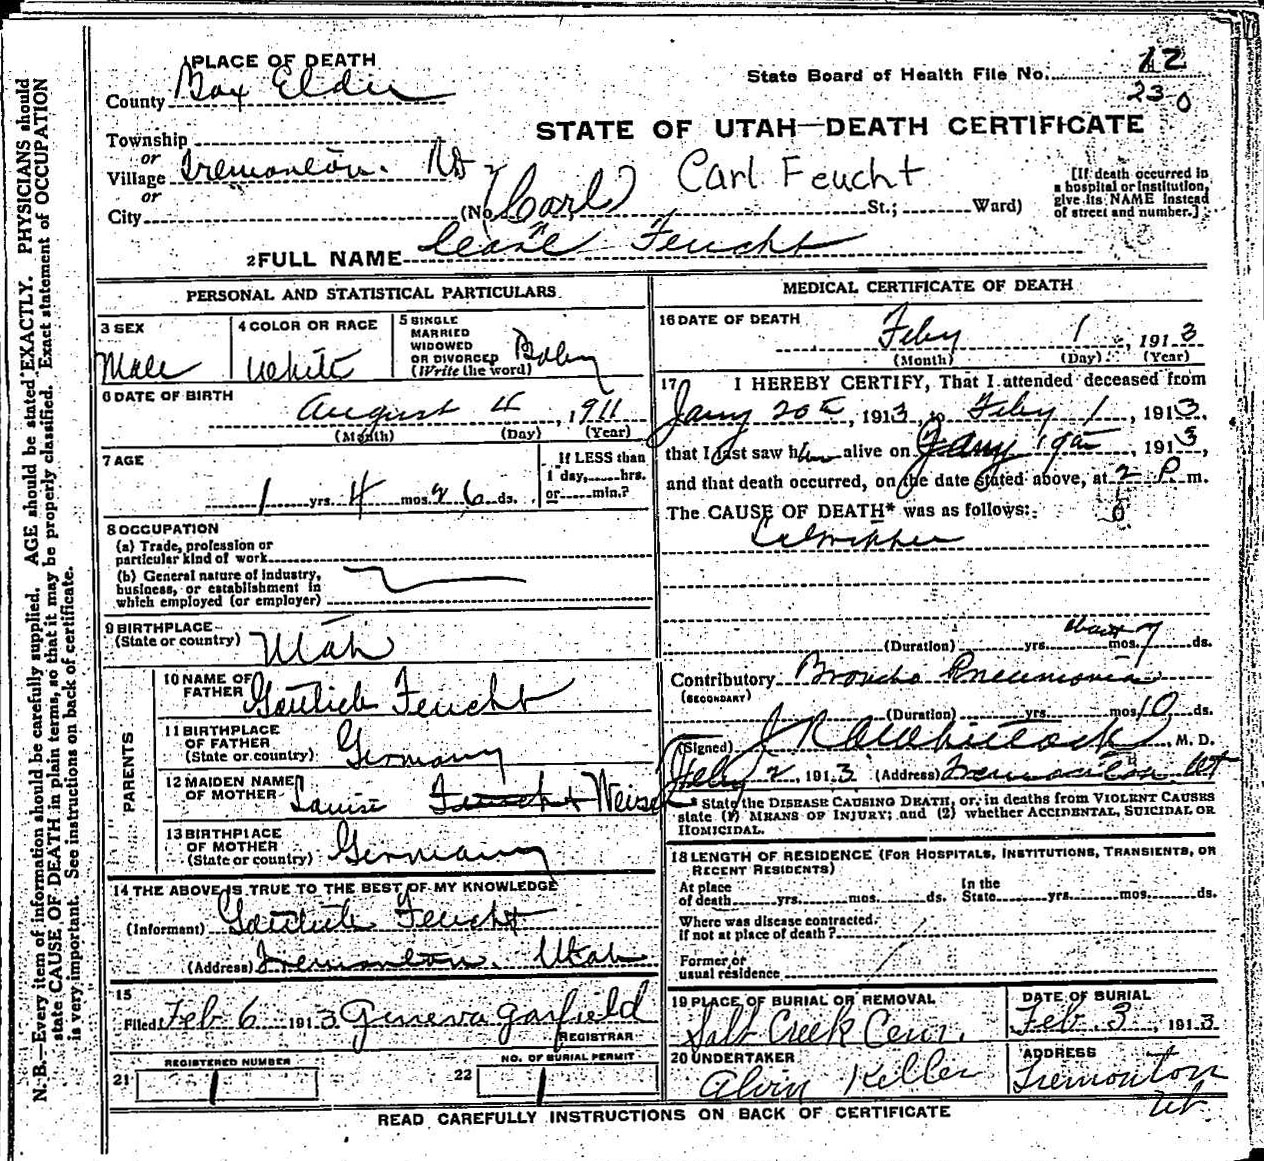 PLACE OF DEATH
County Box Elder
State Board of Health File No. 12
23 0
STATE OF UTAH—DEATH CERTIFICATE
Township
or
Village Tremonton.
or
City (No. (Carl) St.; Ward)
Carl Feucht
[If death occurred in
a hospital or institution,
give its NAME instead
of street and number.]
2 FULL NAME Feucht
PERSONAL AND STATISTICAL PARTICULARS
3 SEX Male
4 COLOR OR RACE White
5 SINGLE
MARRIED
WIDOWED
OR DIVORCED
(Write the word) Baby
6 DATE OF BIRTH
August 4, 1911
(Month) (Day) (Year)
7 AGE
1 yrs. 4 mos. 26 ds.
If LESS than
1 day, hrs.
or min.?
8 OCCUPATION
(a) Trade, profession or
particular kind of work
(b) General nature of industry,
business, or establishment in
which employed (or employer)
9 BIRTHPLACE
(State or country) Utah
PARENTS
10 NAME OF
FATHER Gottlieb Feucht
11 BIRTHPLACE
OF FATHER
(State or country) Germany
12 MAIDEN NAME
OF MOTHER Louise Feucht
13 BIRTHPLACE
OF MOTHER
(State or country) Germany
14 THE ABOVE IS TRUE TO THE BEST OF MY KNOWLEDGE
(Informant) Gottlieb Feucht
(Address) Tremonton. Utah
15
Filed Feb 6 1913 Geneva Garfield
REGISTRAR
REGISTERED NUMBER
21 1
NO. OF BURIAL PERMIT
22 1
MEDICAL CERTIFICATE OF DEATH
16 DATE OF DEATH
Feby 1, 1913
(Month) (Day) (Year)
17 I HEREBY CERTIFY, That I attended deceased from
Jany 20th, 1913, to Feby 1, 1913,
that I last saw him alive on Jany, 1913,
and that death occurred, on the date stated above, at 2 P. m.
The CAUSE OF DEATH* was as follows:
La Grippe
(Duration) yrs. mos. 7 ds.
Contributory Broncho Pneumonia
(SECONDARY)
(Duration) yrs. mos. 10 ds.
(Signed), M. D.
Feby 2, 1913 (Address) Tremonton Ut
* State the DISEASE CAUSING DEATH, or, in deaths from VIOLENT CAUSES
state (1) MEANS OF INJURY; and (2) whether ACCIDENTAL, SUICIDAL OR
HOMICIDAL.
18 LENGTH OF RESIDENCE (FOR HOSPITALS, INSTITUTIONS, TRANSIENTS, OR
RECENT RESIDENTS)
At place
of death yrs. mos. ds.
In the
State yrs. mos. ds.
Where was disease contracted.
if not at place of death?
Former or
usual residence
19 PLACE OF BURIAL OR REMOVAL
Salt Creek Cem.
DATE OF BURIAL
Feb. 3, 1913
20 UNDERTAKER
Alvin Keller
ADDRESS
Tremonton
Ut
READ CAREFULLY INSTRUCTIONS ON BACK OF CERTIFICATE
N. B.—Every item of information should be carefully supplied. AGE should be stated EXACTLY. PHYSICIANS should
state CAUSE OF DEATH in plain terms, so that it may be properly classified. Exact statement of OCCUPATION
is very important. See instructions on back of certificate.